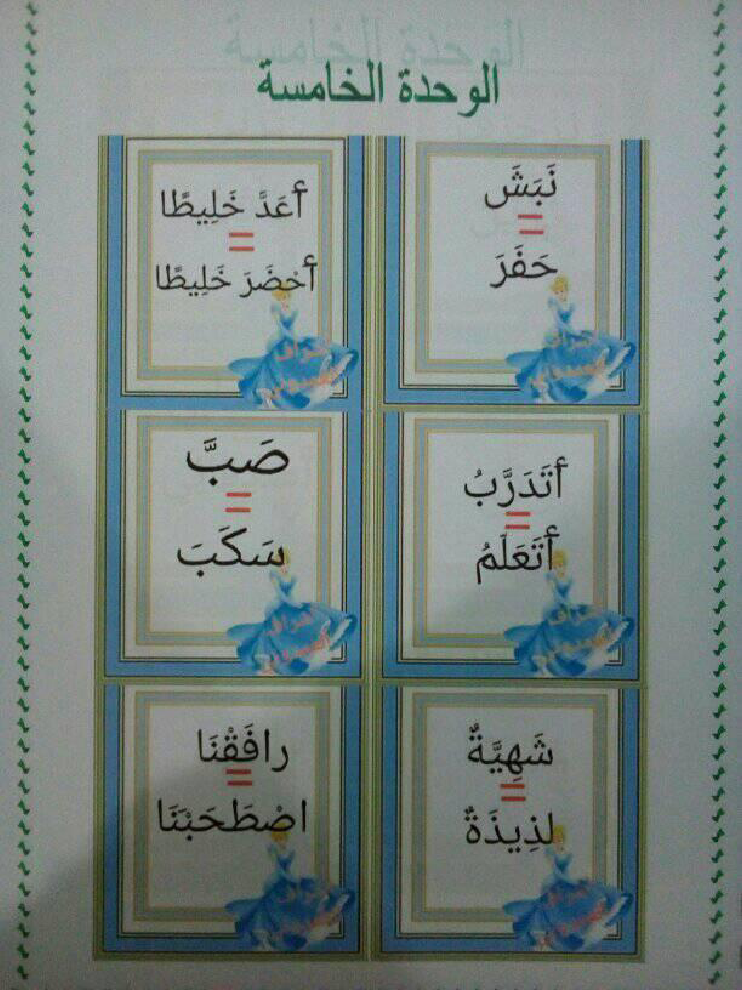 الوحدة الخامسة
نَبَشَ
=
حَفَرَ
أعَدَّ خَلِيطًا
=
أحْضَرَ خَلِيطًا
أتَدَرَّبُ
=
أتَعَلَّمُ
صَبَّ
=
سَكَبَ
شَهِيَّةٌ
=
لذِيذَةٌ
رافَقْنَا
=
اصْطَحَبْنَا